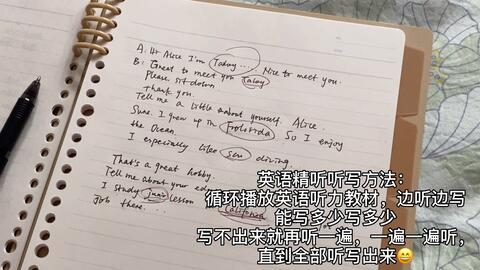 A: Hi Alice I'm Talay... Nice to meet you.
B: Great to meet you Talay
Please sit down
thank you.
Tell me a little about yourself. Alice.
Sure. I grew up in Foolorida So I enjoy
the Ocean.
I especially like seu diving.
That's a great hobby.
Tell me about your edu
I study lesson Califonea
Job there...
英语精听听写方法：
循环播放英语听力教材，边听边写
能写多少写多少
写不出来就再听一遍，一遍一遍听，
直到全部听写出来😄